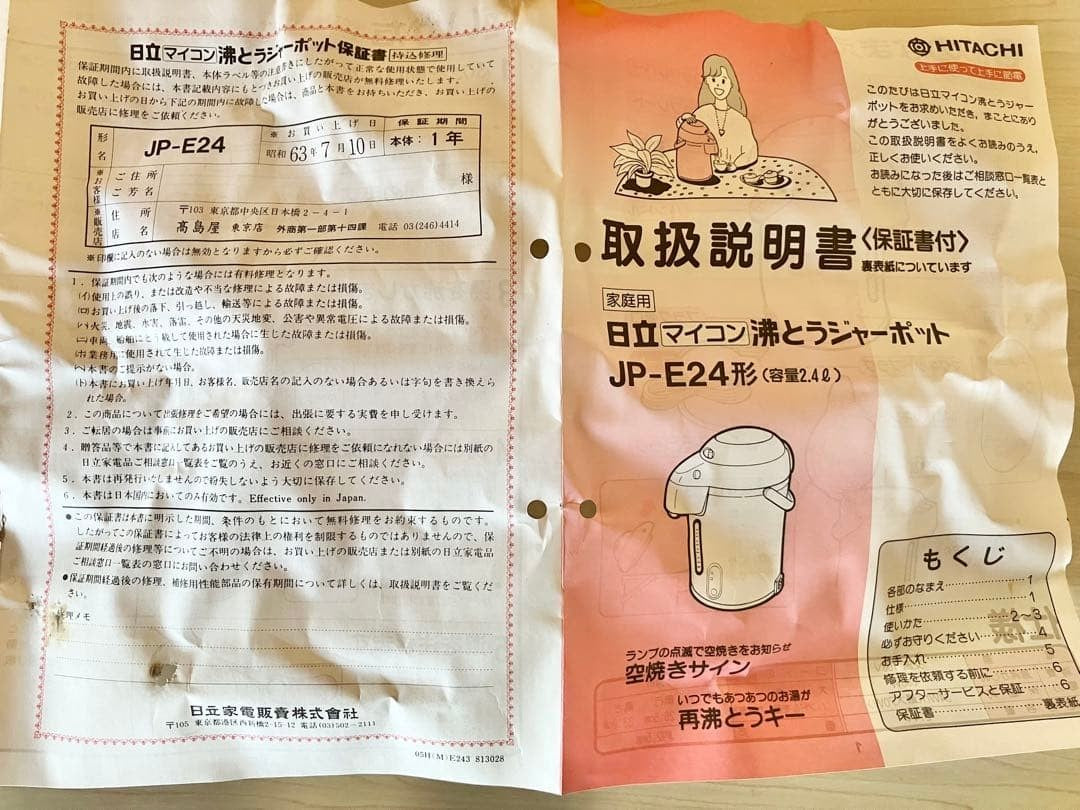 日立マイコン沸とうジャーポット保証書 持込修理
保証期間内に取扱説明書、本体ラベル等の注意書きにしたがって正常な使用状態で使用していて
故障した場合には、本書記載内容にもとづきお買い上げの販売店が無料修理いたします。
お買い上げの日から下記の期間内に故障した場合は、商品と本書をお持ちいただき、お買い上げの
販売店に修理をご依頼ください。
形名 JP-E24
※お買い上げ日 昭和63年7月10日
保証期間 本体：1年
※お客様 ご住所
ご芳名 様
※販売店 住所 〒103 東京都中央区日本橋2-4-1
店名 高島屋 東京店 外商第一部第十四課 電話 03(246)4414
※印欄に記入のない場合は無効となりますから必ずご確認ください。
1．保証期間内でも次のような場合には有料修理となります。
(イ)使用上の誤り、または改造や不当な修理による故障または損傷。
(ロ)お買い上げ後の落下、引っ越し、輸送等による故障または損傷。
(ハ)火災、地震、水害、落雷、その他の天災地変、公害や異常電圧による故障または損傷。
(ニ)車両、船舶にとう載して使用された場合に生じた故障または損傷。
(ホ)業務用に使用されて生じた故障または損傷。
(ヘ)本書のご提示がない場合。
(ト)本書にお買い上げ年月日、お客様名、販売店名の記入のない場合あるいは字句を書き換えら
れた場合。
2．この商品について出張修理をご希望の場合には、出張に要する実費を申し受けます。
3．ご転居の場合は事前にお買い上げの販売店にご相談ください。
4．贈答品等で本書に記入してあるお買い上げの販売店に修理をご依頼になれない場合には別紙の
日立家電品ご相談窓口一覧表をご覧のうえ、お近くの窓口にご相談ください。
5．本書は再発行いたしませんので紛失しないよう大切に保存してください。
6．本書は日本国内においてのみ有効です。Effective only in Japan.
●この保証書は本書に明示した期間、条件のもとにおいて無料修理をお約束するものです。
したがってこの保証書によってお客様の法律上の権利を制限するものではありませんので、保
証期間経過後の修理等についてご不明の場合は、お買い上げの販売店または別紙の日立家電品
ご相談窓口一覧表の窓口にお問い合わせください。
●保証期間経過後の修理、補修用性能部品の保有期間について詳しくは、取扱説明書をご覧くだ
さい。
修理メモ
日立家電販賣株式會社
〒105 東京都港区西新橋2-15-12 電話(03)502-2111
05H(M)E243 813028
HITACHI
上手に使って上手に節電
このたびは日立マイコン沸とうジャー
ポットをお求めいただき、まことにあり
がとうございました。
この取扱説明書をよくお読みのうえ、
正しくお使いください。
お読みになった後はご相談窓口一覧表と
ともに大切に保存してください。
取扱説明書〈保証書付〉
裏表紙についています
家庭用
日立マイコン沸とうジャーポット
JP-E24形（容量2.4ℓ）
ランプの点滅で空焼きをお知らせ
空焼きサイン
いつでもあつあつのお湯が
再沸とうキー
もくじ
各部のなまえ…………1
仕様…………1
使いかた…………2〜3
必ずお守りください…………4
お手入れ…………5
修理を依頼する前に…………6
アフターサービスと保証…………6
保証書…………裏表紙